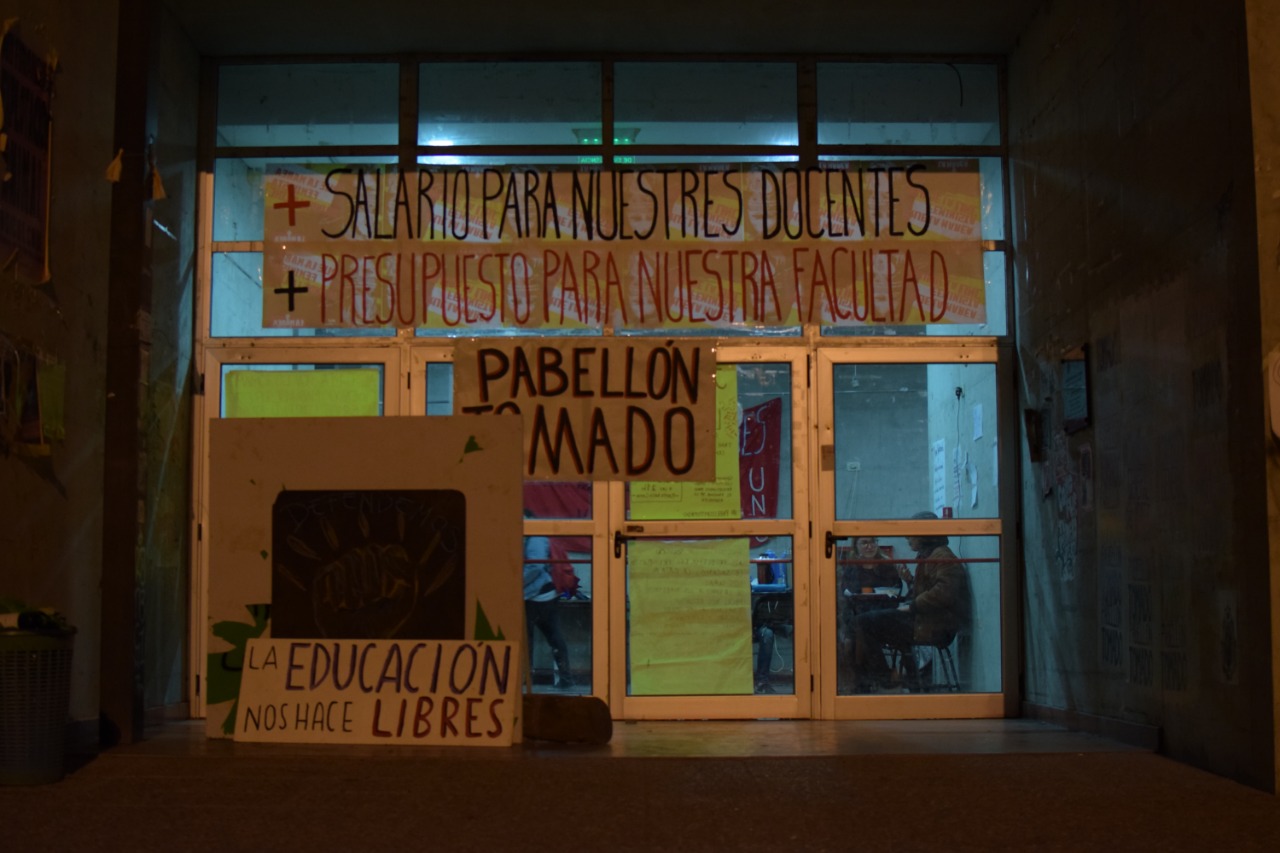 + SALARIO PARA NUESTRES DOCENTES
+ PRESUPUESTO PARA NUESTRA FACULTAD
PABELLÓN
TOMADO
ES
UN
LA EDUCACIÓN
NOS HACE LIBRES